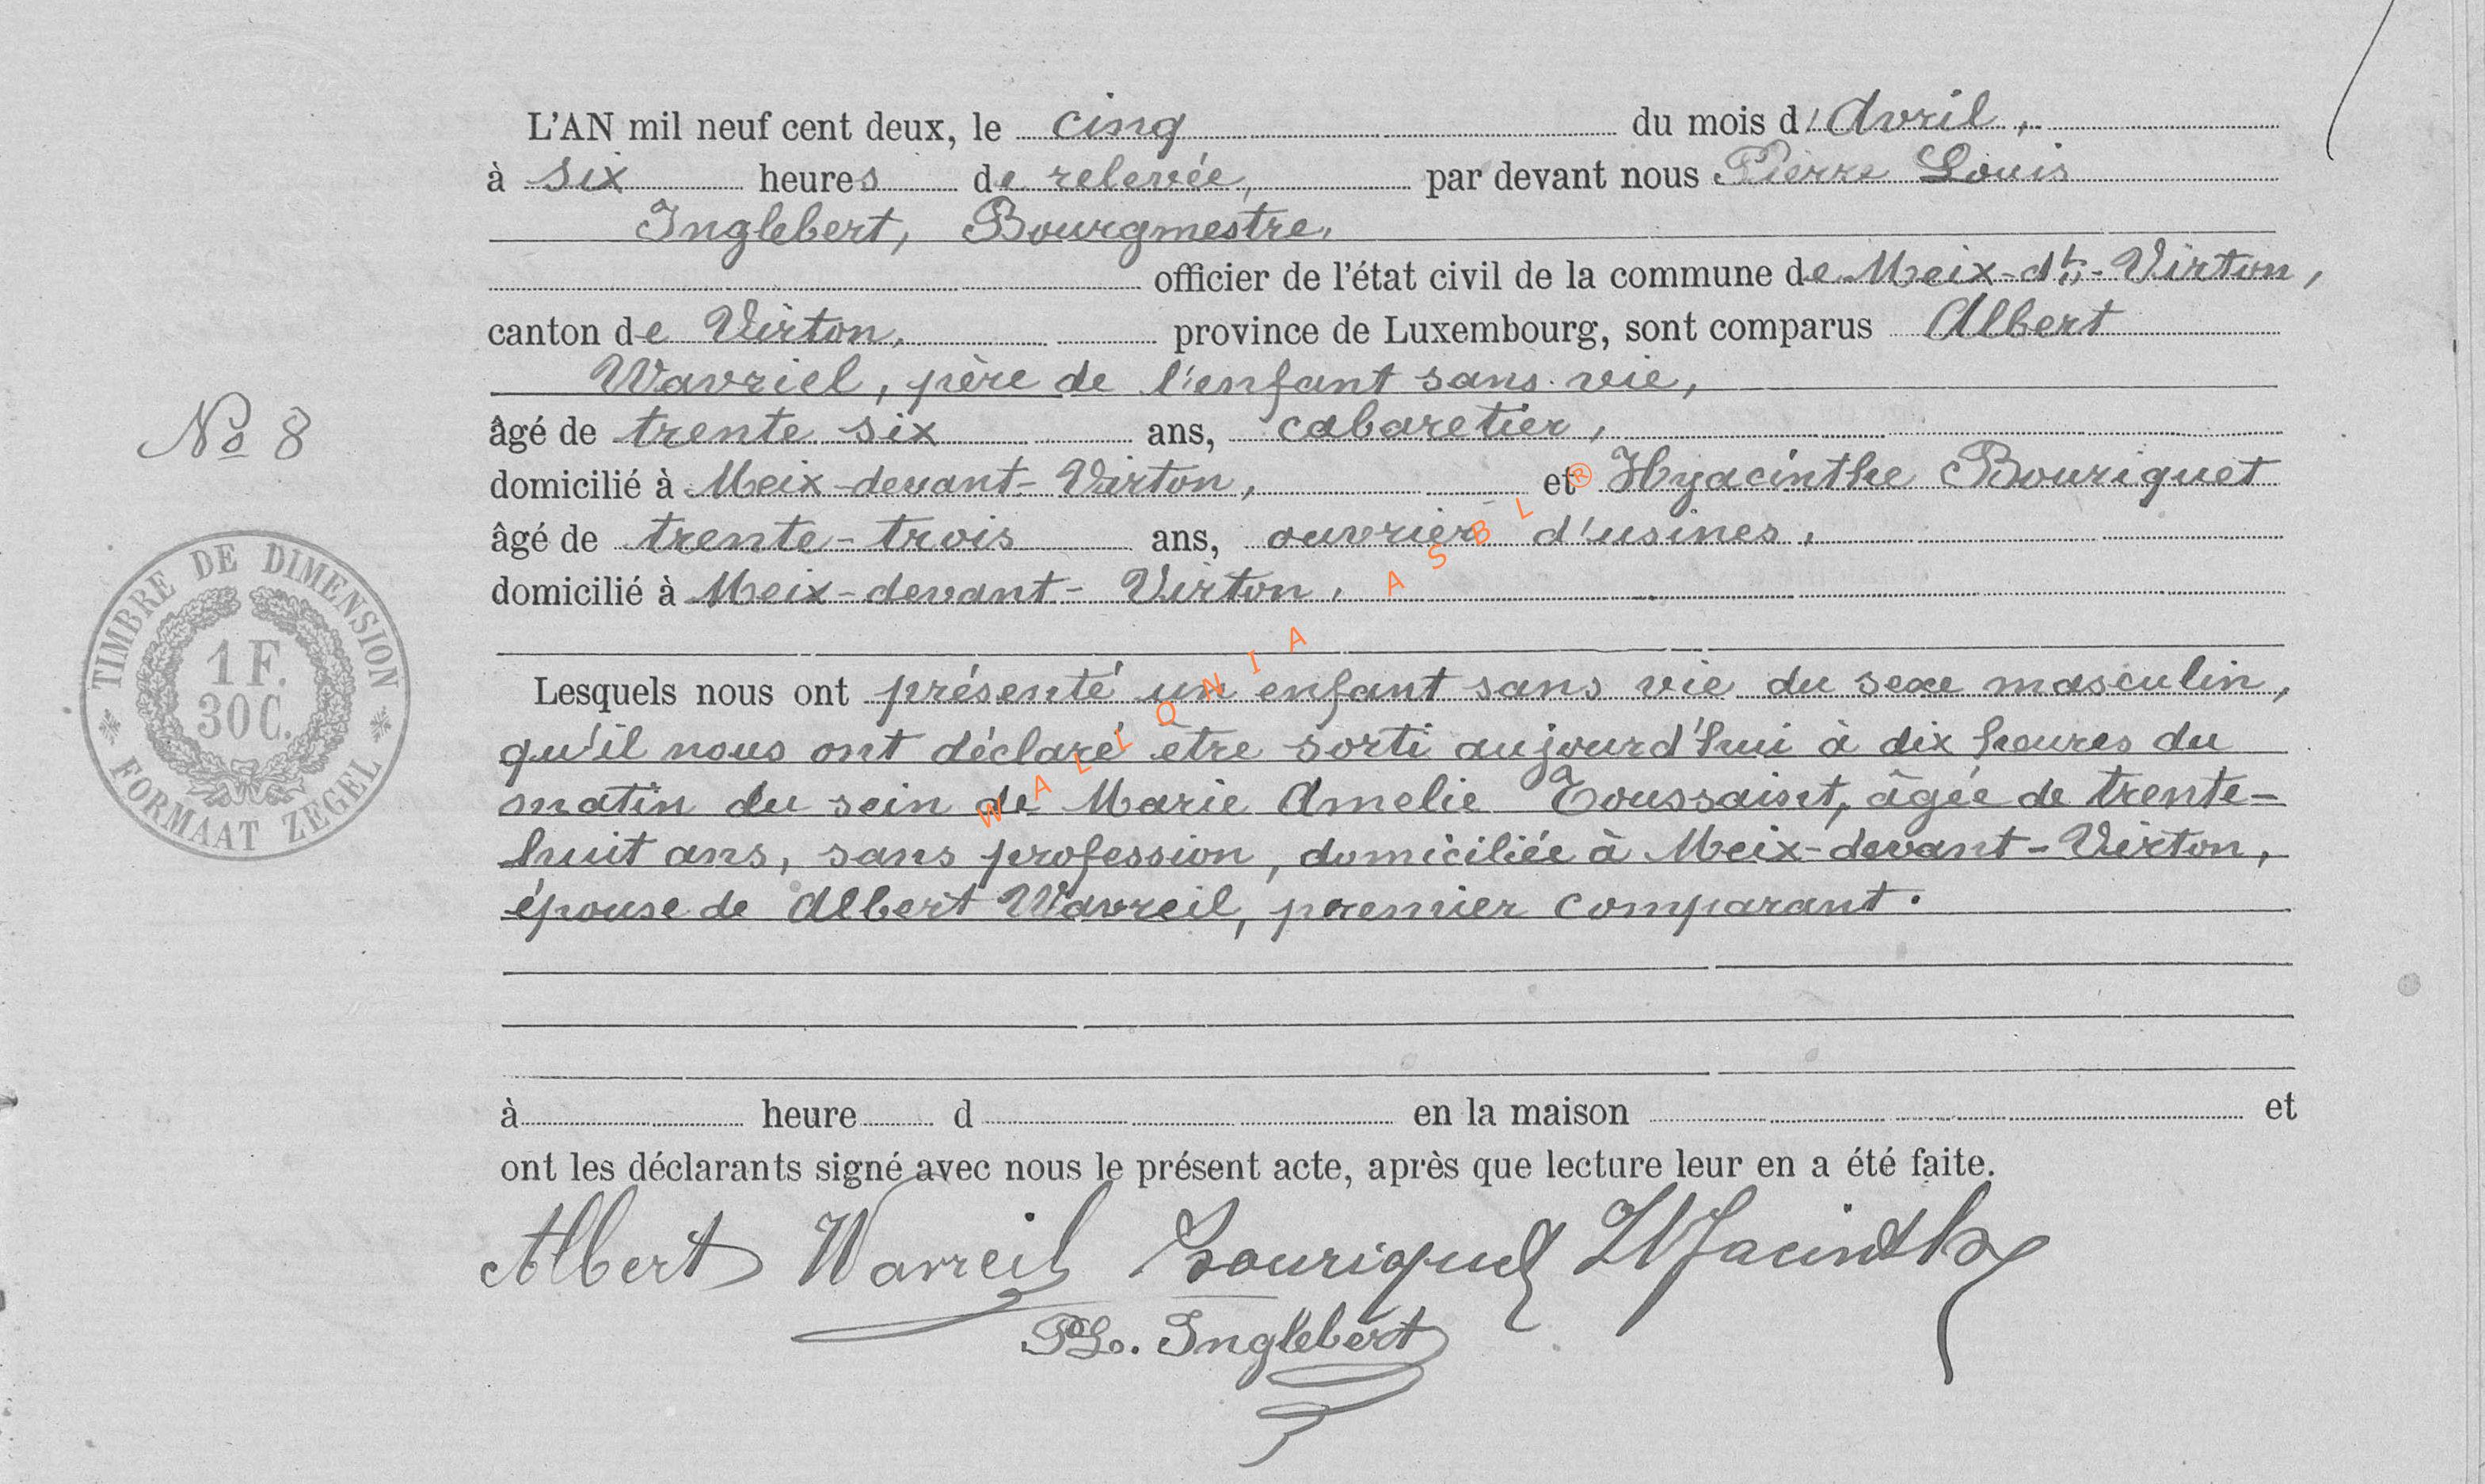 L'AN mil neuf cent deux, le cinq du mois d'Avril,
à six heures de relevée, par devant nous Pierre Louis
Inglebert, Bourgmestre,
officier de l'état civil de la commune de Meix-dt-Virton,
canton de Virton, province de Luxembourg, sont comparus Albert
Wavriel, père de l'enfant sans vie,
N° 8
âgé de trente six ans, cabaretier,
domicilié à Meix-devant-Virton, et Hyacinthe Bouriquet
âgé de trente-trois ans, ouvrier d'usines,
domicilié à Meix-devant-Virton,
TIMBRE DE DIMENSION
1 F.
30 C.
FORMAAT ZEGEL
Lesquels nous ont présenté un enfant sans vie du sexe masculin,
qu'il nous ont déclaré être sorti aujourd'hui à dix heures du
matin du sein de Marie Amelie Toussaint, âgée de trente-
huit ans, sans profession, domiciliée à Meix-devant-Virton,
épouse de Albert Wavreil, premier comparant.
à heure d en la maison et
ont les déclarants signé avec nous le présent acte, après que lecture leur en a été faite.
Albert Wavreil Bouriquet Hyacinthe
PL. Inglebert
WALLONIA ASBL ®